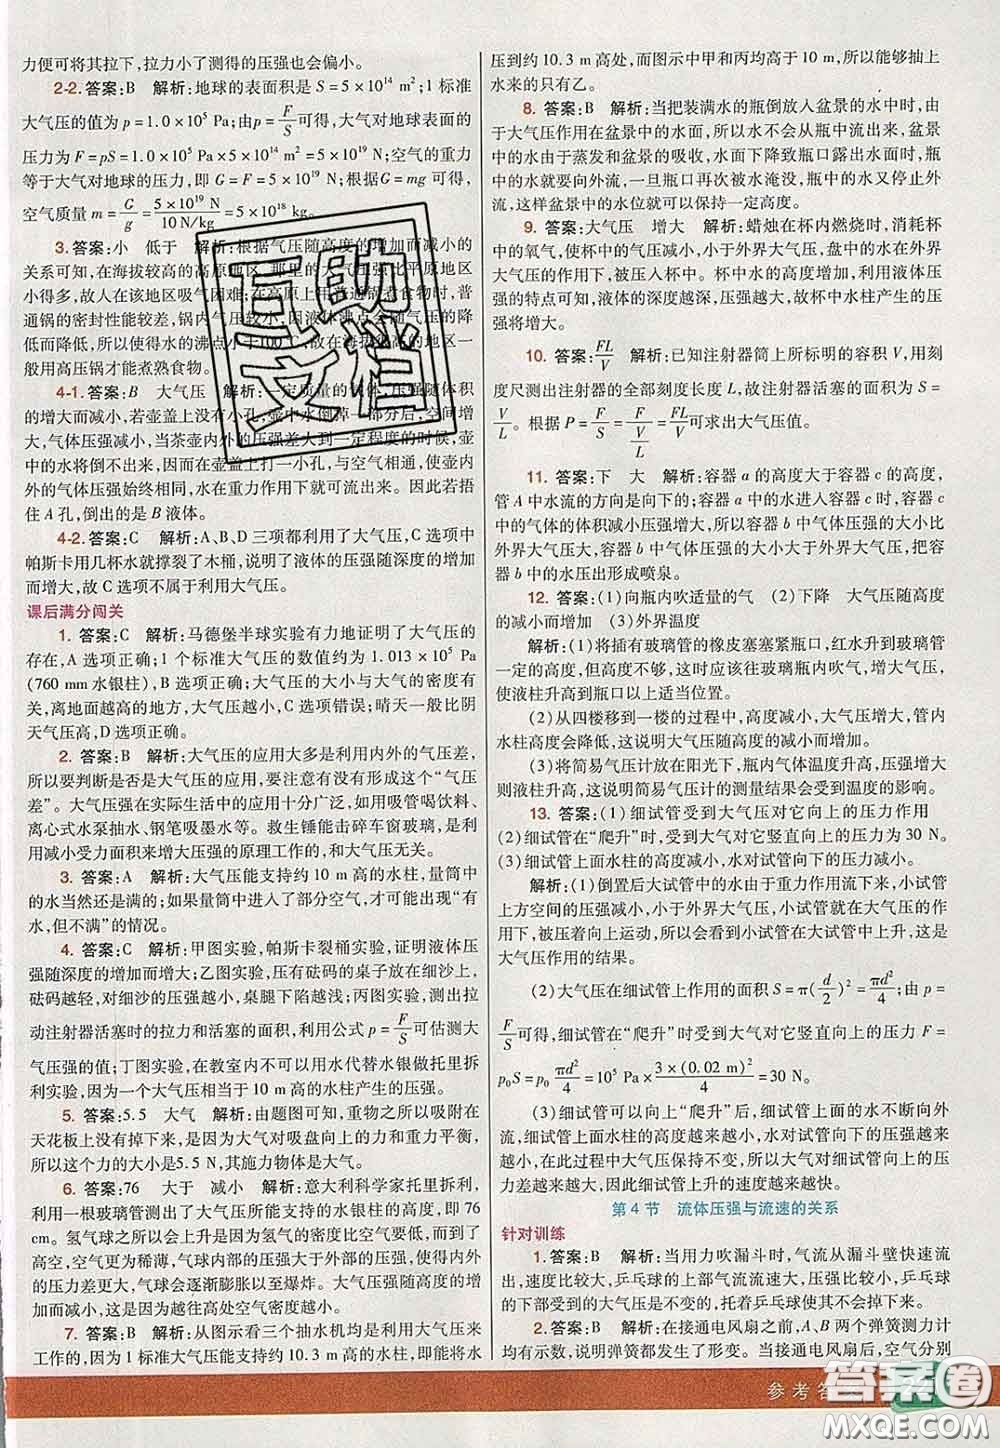 力便可将其拉下,拉力小了测得的压强也会偏小。
2-2. 答案:B 解析:地球的表面积是 S=5×10¹⁴ m²;1 标准
大气压的值为 p=1.0×10⁵ Pa,由 p=F/S可得,大气对地球表面的
压力为 F=pS=1.0×10⁵ Pa×5×10¹⁴ m²=5×10¹⁹ N;空气的重力
等于大气对地球的压力,即 G=F=5×10¹⁹ N;根据 G=mg 可得,
空气质量 m=G/g=5×10¹⁹ N/10 N/kg=5×10¹⁸ kg。
3. 答案:小 低于 解析:根据气压随高度的增加而减小的
关系可知,在海拔较高的高原地区,那里的大气压强比平原地区
小得多,故人在该地区吸气困难;在高原上用普通锅煮食物时,普
通锅的密封性能较差,锅内气压较小,因液体沸点会随气压的降
低而降低,所以使得水的沸点小于100℃,故在海拔高的地区一
般用高压锅才能煮熟食物。
4-1. 答案:B 大气压 解析:一定质量的气体,压强随体积
的增大而减小,若壶盖上没有小孔,壶中水倒掉一部分后,空间增
大,气体压强会减小;当茶壶内外的压强差大到一定程度的时候,壶
中的水将不易倒出;在壶盖上打一小孔,与空气相通,使壶内
外的气体压强始终相同,水在重力作用下就可流出来。因此若捂
住 A 孔,倒出的是 B 液体。
4-2. 答案:C 解析:A、B、D 三项都利用了大气压,C 选项中
帕斯卡用几杯水就撑裂了木桶,说明了液体的压强随深度的增加
而增大,故 C 选项不属于利用大气压。
课后满分闯关
1. 答案:C 解析:马德堡半球实验有力地证明了大气压的
存在,A 选项正确;1 个标准大气压的数值约为 1.013×10⁵ Pa
(760 mm 水银柱),B 选项正确;大气压的大小与大气的密度有
关,离地面越高的地方,大气压越小,C 选项错误;晴天一般比阴
天气压高,D 选项正确。
2. 答案:B 解析:大气压的应用大多是利用内外的气压差,
所以要判断是否是大气压的应用,要注意有没有形成这个“气压
差”。大气压强在实际生活中的应用十分广泛,如用吸管喝饮料、
离心式水泵抽水、钢笔吸墨水等。救生锤能击碎车窗玻璃,是利
用减小受力面积来增大压强的原理工作的,和大气压无关。
3. 答案:A 解析:大气压能支持约 10 m 高的水柱,量筒中
的水当然还是满的;如果量筒中进入了部分空气,才可能出现“有
水,但不满”的情况。
4. 答案:C 解析:甲图实验,帕斯卡裂桶实验,证明液体压
强随深度的增加而增大;乙图实验,压有砝码的桌子放在细沙上,
砝码越轻,对细沙的压强越小,桌腿下陷得越浅;丙图实验,测出拉
动注射器活塞时的拉力和活塞的面积,利用公式 p=F/S可估测大
气压强的值;丁图实验,在教室内不可以用水代替水银做托里拆
利实验,因为一个大气压相当于 10 m 高的水柱产生的压强。
5. 答案:5.5 大气 解析:由题图可知,重物之所以吸附在
天花板上没有掉下来,是因为大气对吸盘向上的力和重力平衡,
所以这个力的大小是5.5 N,其施力物体是大气。
6. 答案:76 大于 减小 解析:意大利科学家托里拆利,
用一根玻璃管测出了大气压所能支持的水银柱的高度,即为 76
cm。氢气球之所以会上升是因为氢气的密度小于空气;到了
高空,空气越来越稀薄,气球内部的压力会大于外部的压力,内外
的压力差更大,气球会逐渐膨胀以至爆炸。大气压随高度的增
加而减小,这是因为越往高处空气密度越小。
7. 答案:B 解析:从图示看三个抽水机均是利用大气压来
工作的,因为 1 标准大气压能支持约 10.3 m 高的水柱,即能将水
压到约 10.3 m高处,而图示中甲和丙均高于10 m,所以能够抽上
水来的只有乙。
8. 答案:B 解析:当把装满水的瓶倒放入盆景的水中时,由
于大气压作用在盆景中的水面,所以水不会从瓶中流出来,盆景
中的水由于蒸发和盆景的吸收,水面下降时露出瓶口,瓶
中的水就要向外流,一旦瓶口再次被水淹没,瓶中的水又停止外
流,这样盆景中的水位就可以保持一定高度。
9. 答案:大气压 增大 解析:蜡烛在杯内燃烧时,消耗杯
中的氧气,使杯中的气压减小,小于外界大气压,盘中的水在外界
大气压的作用下,被压入杯中。杯中水的高度增加,利用液体压
强的特点可知,液体的深度越深,压强越大,故杯中水柱产生的压
强将增大。
10. 答案:FL/V 解析:已知注射器筒上所标明的容积 V,用刻
度尺测出注射器的全部刻度长度 L,故注射器活塞的面积为 S=
V/L。根据 P=F/S=F/(V/L)=FL/V可求出大气压值。
11. 答案:下 大 解析:容器 a 的高度大于容器 c 的高度,
管 A 中水流的方向是向下的;容器 a 中的水进入容器 c 时,容器 c
中的气体的体积减小压强增大,所以容器 b 中气体压强的大小比
外界大气压大,由于容器 b 中压强的大小大于外界大气压,把容
器 b 中的水压出形成喷泉。
12. 答案:(1)向瓶内吹适量的气 (2)下降 大气压随高度
的增加而减小 (3)外界温度
解析:(1)将插有玻璃管的橡皮塞塞紧瓶口,红水升到玻璃管
一定的高度,但高度不够,这时应该往玻璃瓶内吹气,增大气压,
使液柱升高到瓶口以上适当位置。
(2)从四楼移到一楼的过程中,高度减小,大气压增大,管内
水柱高度会降低,这说明大气压随高度的减小而增加。
(3)将简易气压计放在阳光下,瓶内气体温度升高,水柱会升
高,这说明简易气压计的测量结果会受到温度的影响。
13. 答案:(1)细试管受到大气压对它向上的压力作用
(2)细试管在“爬升”时,受到大气对它竖直向上的压力为 30 N。
(3)细试管上面水柱的高度减小,水对试管向下的压力减小。
解析:(1)倒置后大试管中的水由于重力作用流下来,小试管
上方空间的压强减小,小于外界大气压,小试管就在大气压的作
用下上升,所以会看到小试管在大试管中上升,这是
大气压作用的结果。
(2)大气压在细试管上作用的面积 S=π(d/2)²=πd²/4;由 p=
F/S可得,细试管在“爬升”时受到大气对它竖直向上的压力 F=
p₀S=p₀ πd²/4=10⁵ Pa×3×(0.02 m)²/4=30 N。
(3)细试管可以向上“爬升”后,细试管上面的水不断向外
流,细试管上面水柱的高度越来越小,水对试管向下的压强越来
越小,因为此过程中大气压保持不变,所以细试管受到的合力越
来越大,因此细试管上升的速度越来越快。
第 4 节 流体压强与流速的关系
针对训练
1. 答案:B 解析:当用力吹漏斗时,气流从漏斗壁快速流
出,速度比较大,乒乓球的上部气流流速大,压强小,乒乓球
的下部受到的大气压是不变的,因此乒乓球不会掉下来。
2. 答案:B 解析:在接通电风扇之前,A、B 两个弹簧测力计
均有示数,说明弹簧都发生了形变。当接通电风扇后,空气分别
参考答
答案圈
MXQE.COM
互助
文档